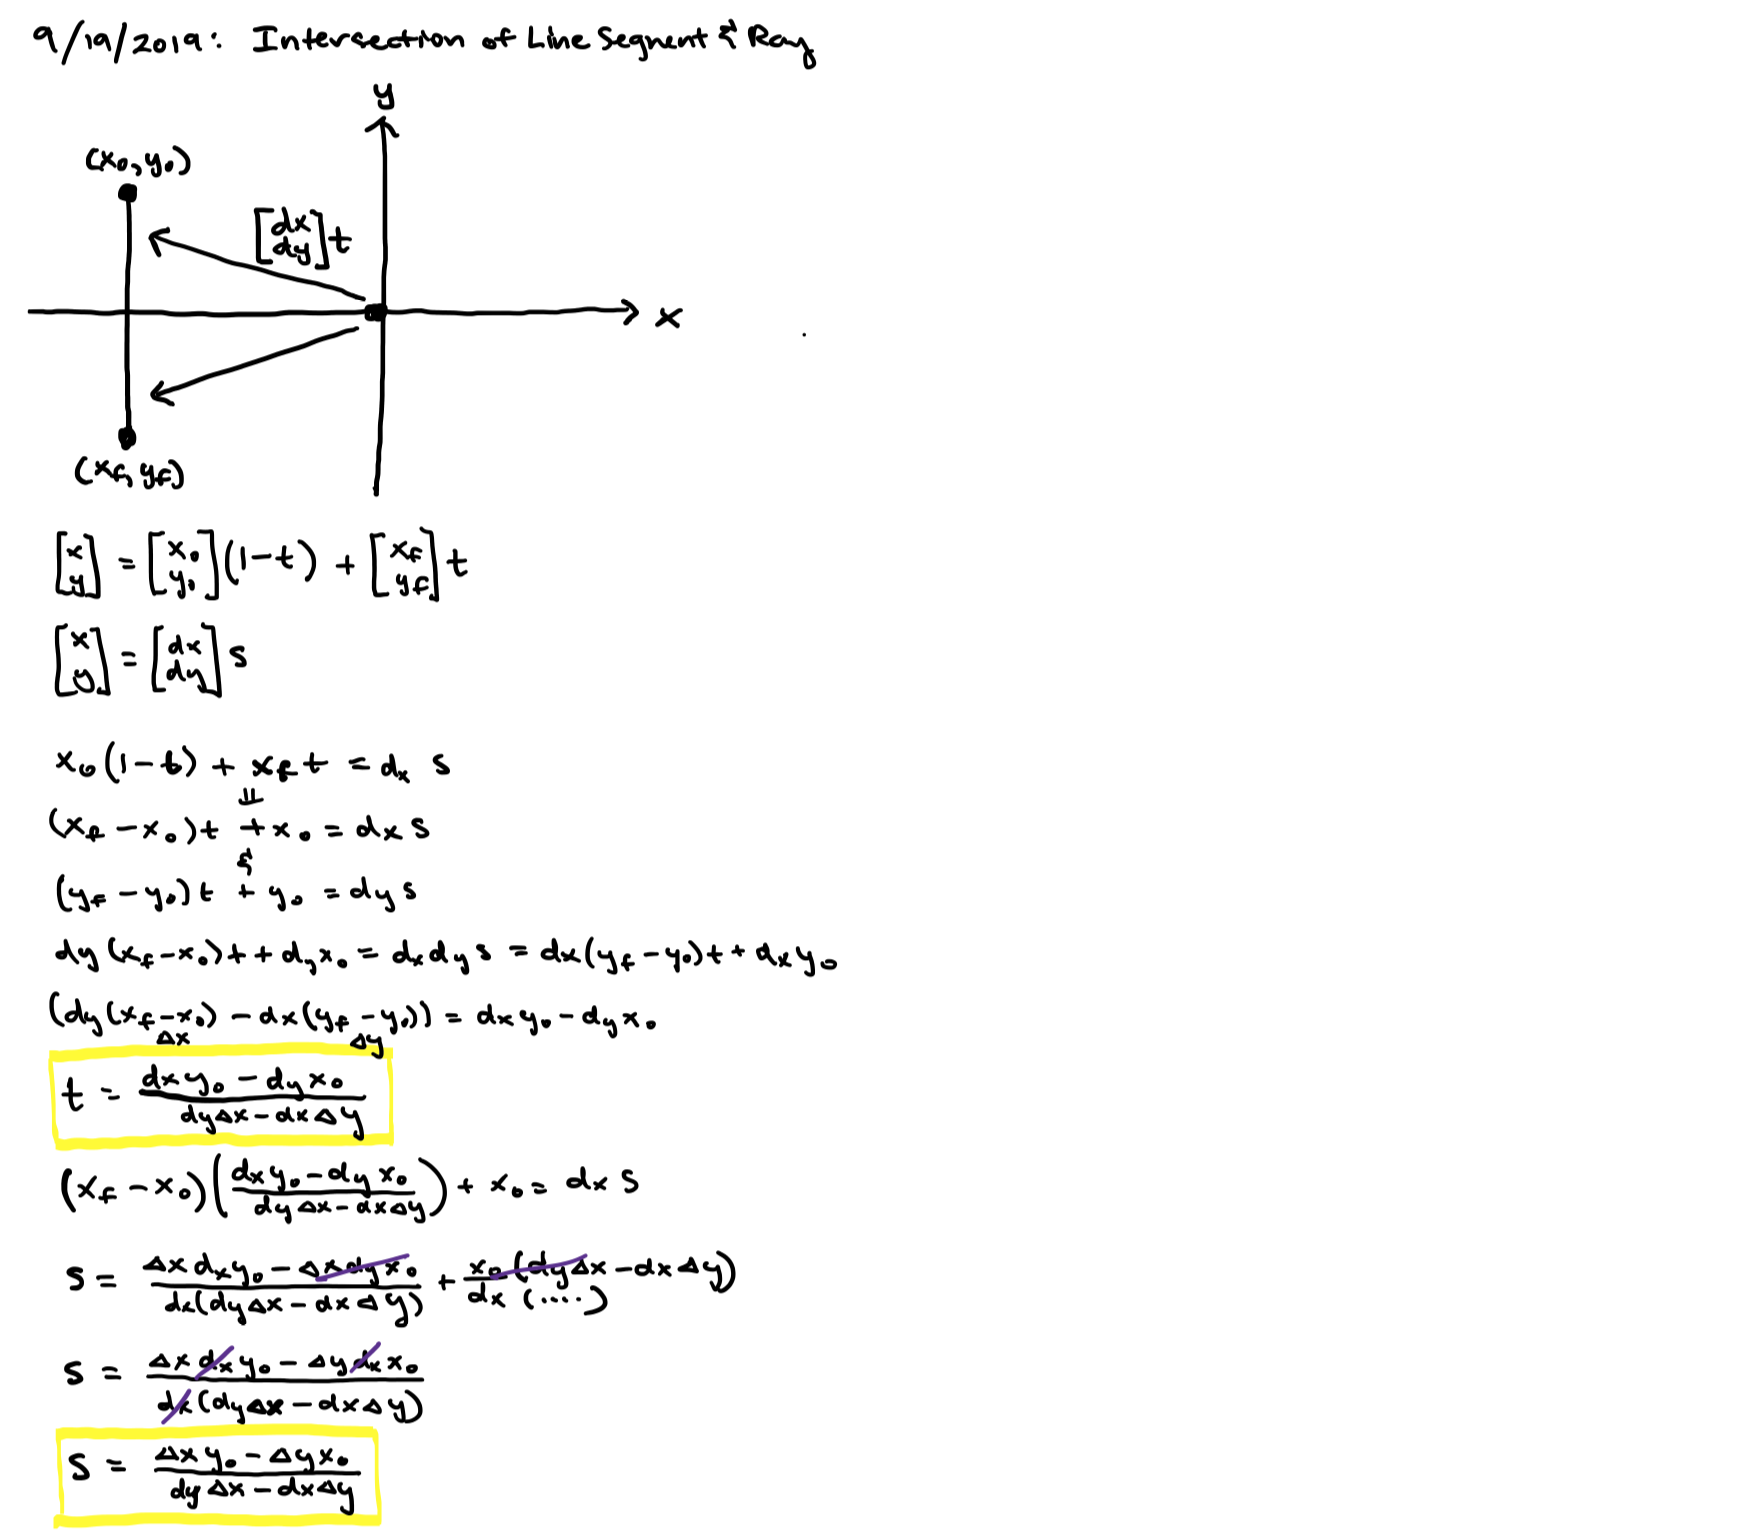 9/19/2019: Intersection of Line Segment & Ray
y
(x₀,y₀)
[dx dy]t
x
(x_f,y_f)
[x y] = [x₀ y₀](1-t) + [x_f y_f]t
[x y] = [dx dy]s
x₀(1-t) + x_f t = dx s
⇓
(x_f - x₀)t + x₀ = dx s
&
(y_f - y₀)t + y₀ = dy s
dy(x_f - x₀)t + dy x₀ = dx dy s = dx(y_f - y₀)t + dx y₀
(dy(x_f - x₀) - dx(y_f - y₀)) = dx y₀ - dy x₀
Δx Δy
t = (dx y₀ - dy x₀)/(dyΔx - dxΔy)
(x_f - x₀)((dx y₀ - dy x₀)/(dyΔx - dxΔy)) + x₀ = dx s
s = (Δx dx y₀ - Δx dy x₀)/(dx(dyΔx - dxΔy)) + x₀(dyΔx - dxΔy)/(dx(....))
s = (Δx dx y₀ - Δy dx x₀)/(dx(dyΔx - dxΔy))
s = (Δx y₀ - Δy x₀)/(dyΔx - dxΔy)